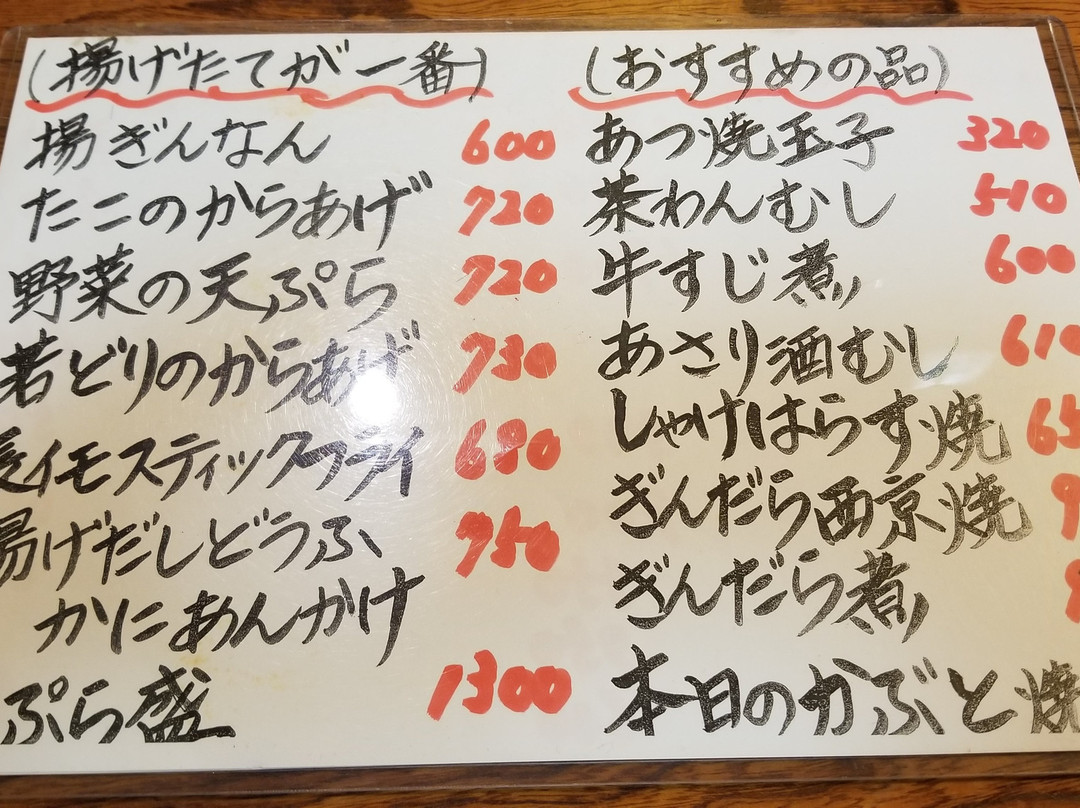 (揚げたてが一番)
揚ぎんなん 600
たこのからあげ 720
野菜の天ぷら 720
若どりのからあげ 730
長イモスティックフライ 680
揚げだしどうふ 750
かにあんかけ
ぷら盛 1300
(おすすめの品)
あつ焼玉子 320
茶わんむし 510
牛すじ煮
600
あさり酒むし 610
しゃけはらす焼
ぎんだら西京焼
ぎんだら煮
本日のかぶと焼